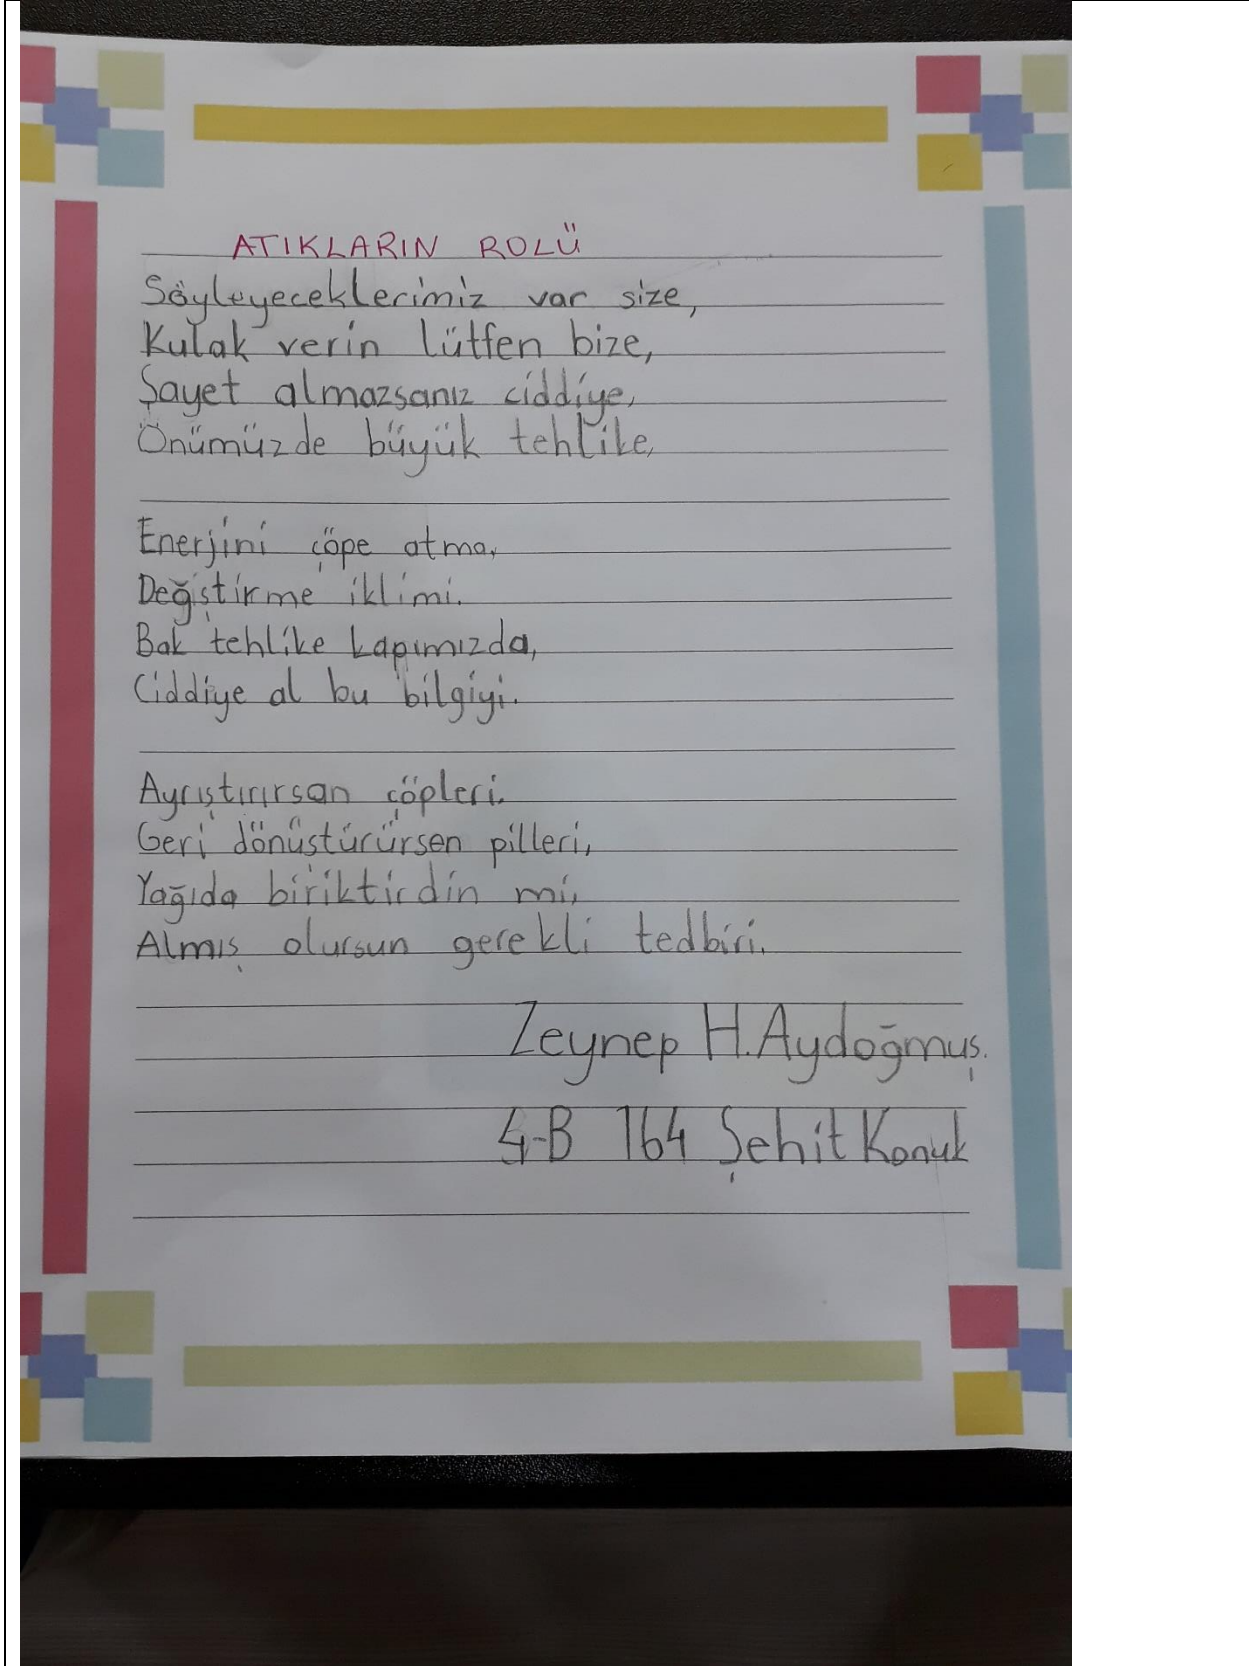 ATIKLARIN ROLÜ
Söyleyeceklerimiz var size,
Kulak verin lütfen bize,
Şayet almazsanız ciddiye,
Önümüzde büyük tehlike,
Enerjini çöpe atma,
Değiştirme iklimi.
Bak tehlike kapımızda,
Ciddiye al bu bilgiyi.
Ayrıştırırsan çöpleri.
Geri dönüştürürsen pilleri,
Yağıda biriktirdin mi,
Almış olursun gerekli tedbiri.
Zeynep H. Aydoğmuş.
4-B 164 Şehit Konuk